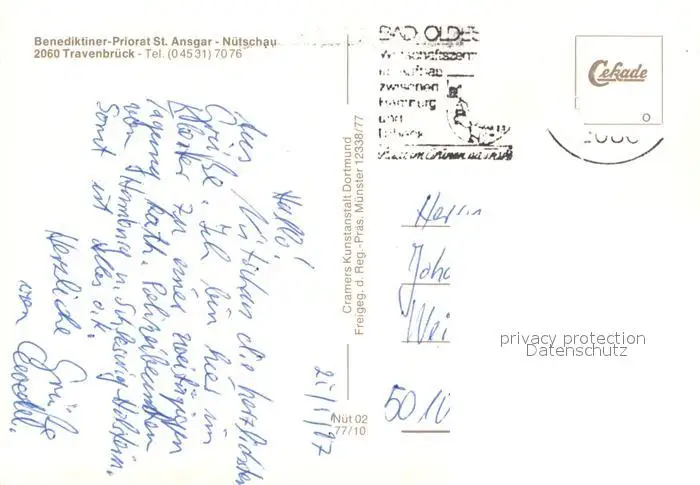 Benediktiner-Priorat St. Ansgar - Nütschau
2060 Travenbrück - Tel. (0 45 31) 70 76
BAD OLDES
Wirtschaftszentrum
zwischen
Hamburg
und
Lübeck
Cekade
Cramers Kunstanstalt Dortmund
Freigeg. d. Reg.-Präs. Münster 12338/77
Nüt 02
77/10
21/1/87
Hallo!
Aus Nütschau die herzlichsten
Grüße. Ich bin hier im
Kloster zu einer zweitägigen
Tagung kath.
von Hamburg u. Schleswig-Holstein.
Sonst ist alles o.k.
Herzliche Grüße
von
Herrn
Joha
Wei
5010
privacy protection
Datenschutz